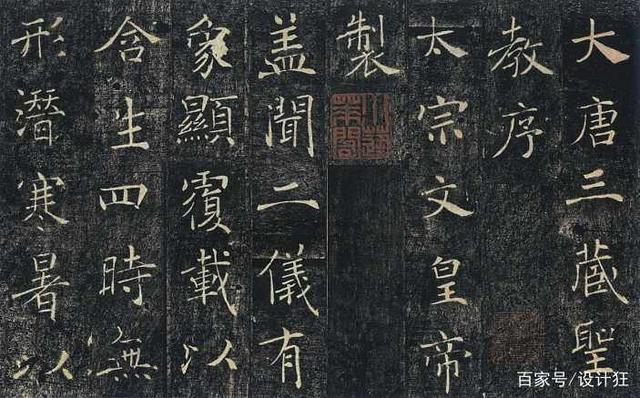 大唐三藏聖
教序
太宗文皇帝
製
盖聞二儀有
象顯覆載以
含生四時無
形潛寒暑以
百家号/设计狂